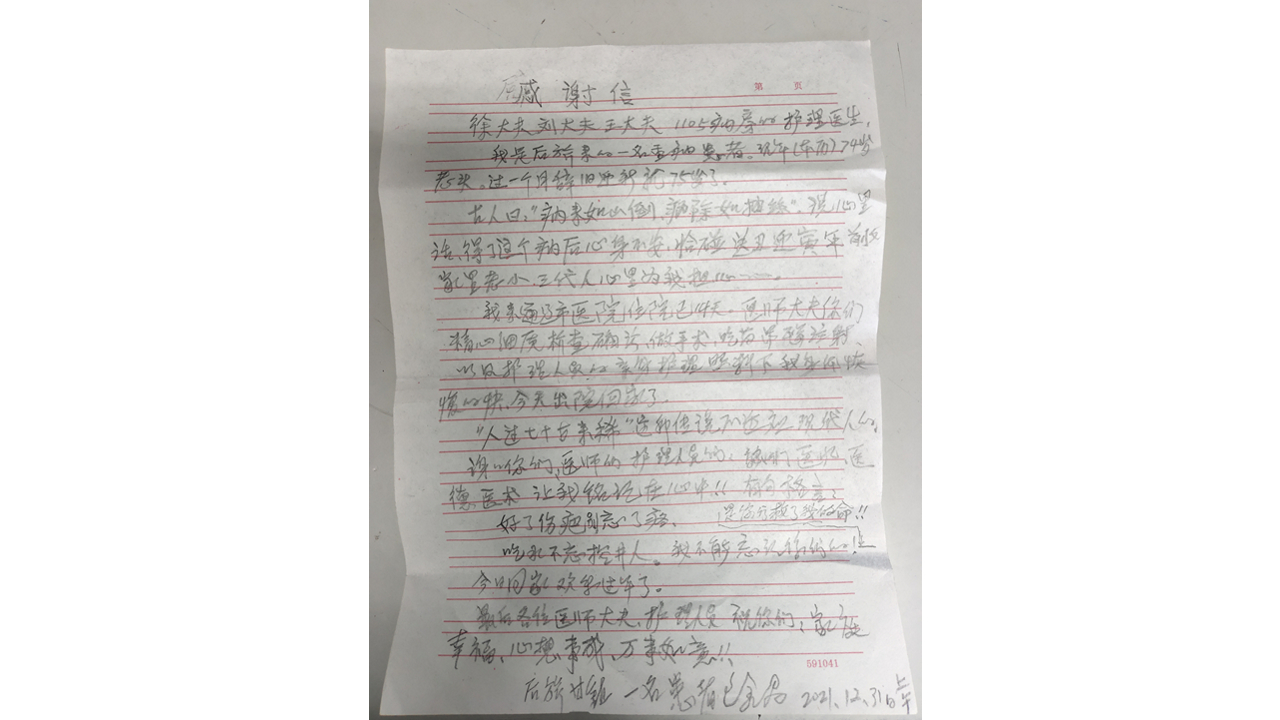 感谢信
第 页
徐大夫刘大夫王大夫 1105病房的护理医生,
我是后旗来的一名重病患者。现年 74岁
老头。过一个月辞旧迎新就75岁了。
古人曰:"病来如山倒,病除如抽丝"。说心里
话,得了这个病后心身不安,恰碰送丑迎寅年
家里老小、三代人心里为我担心……。
我来通辽市医院住院已 天。医师大夫你们
精心细 检查确诊、做手术、吃药 注射、
以及护理人员的亲身护理照料下我身体恢
复的快、今天出院回家了。
"人过七十古来稀"这种传说 现代人的。
谢谢你们、医师们护理人员们、 医
德医术 让我铭记在心中!! 有句格言:
好了伤疤别忘了疼。 是你们救了我的命!!
吃水不忘挖井人。我不能忘记你们的!
今日回家欢乐过年了。
最后各位医师大夫、护理人员 祝你们:家庭
幸福、心想事成、万事如意!!
591041
后旗 一名患者 2021.12.31日上午